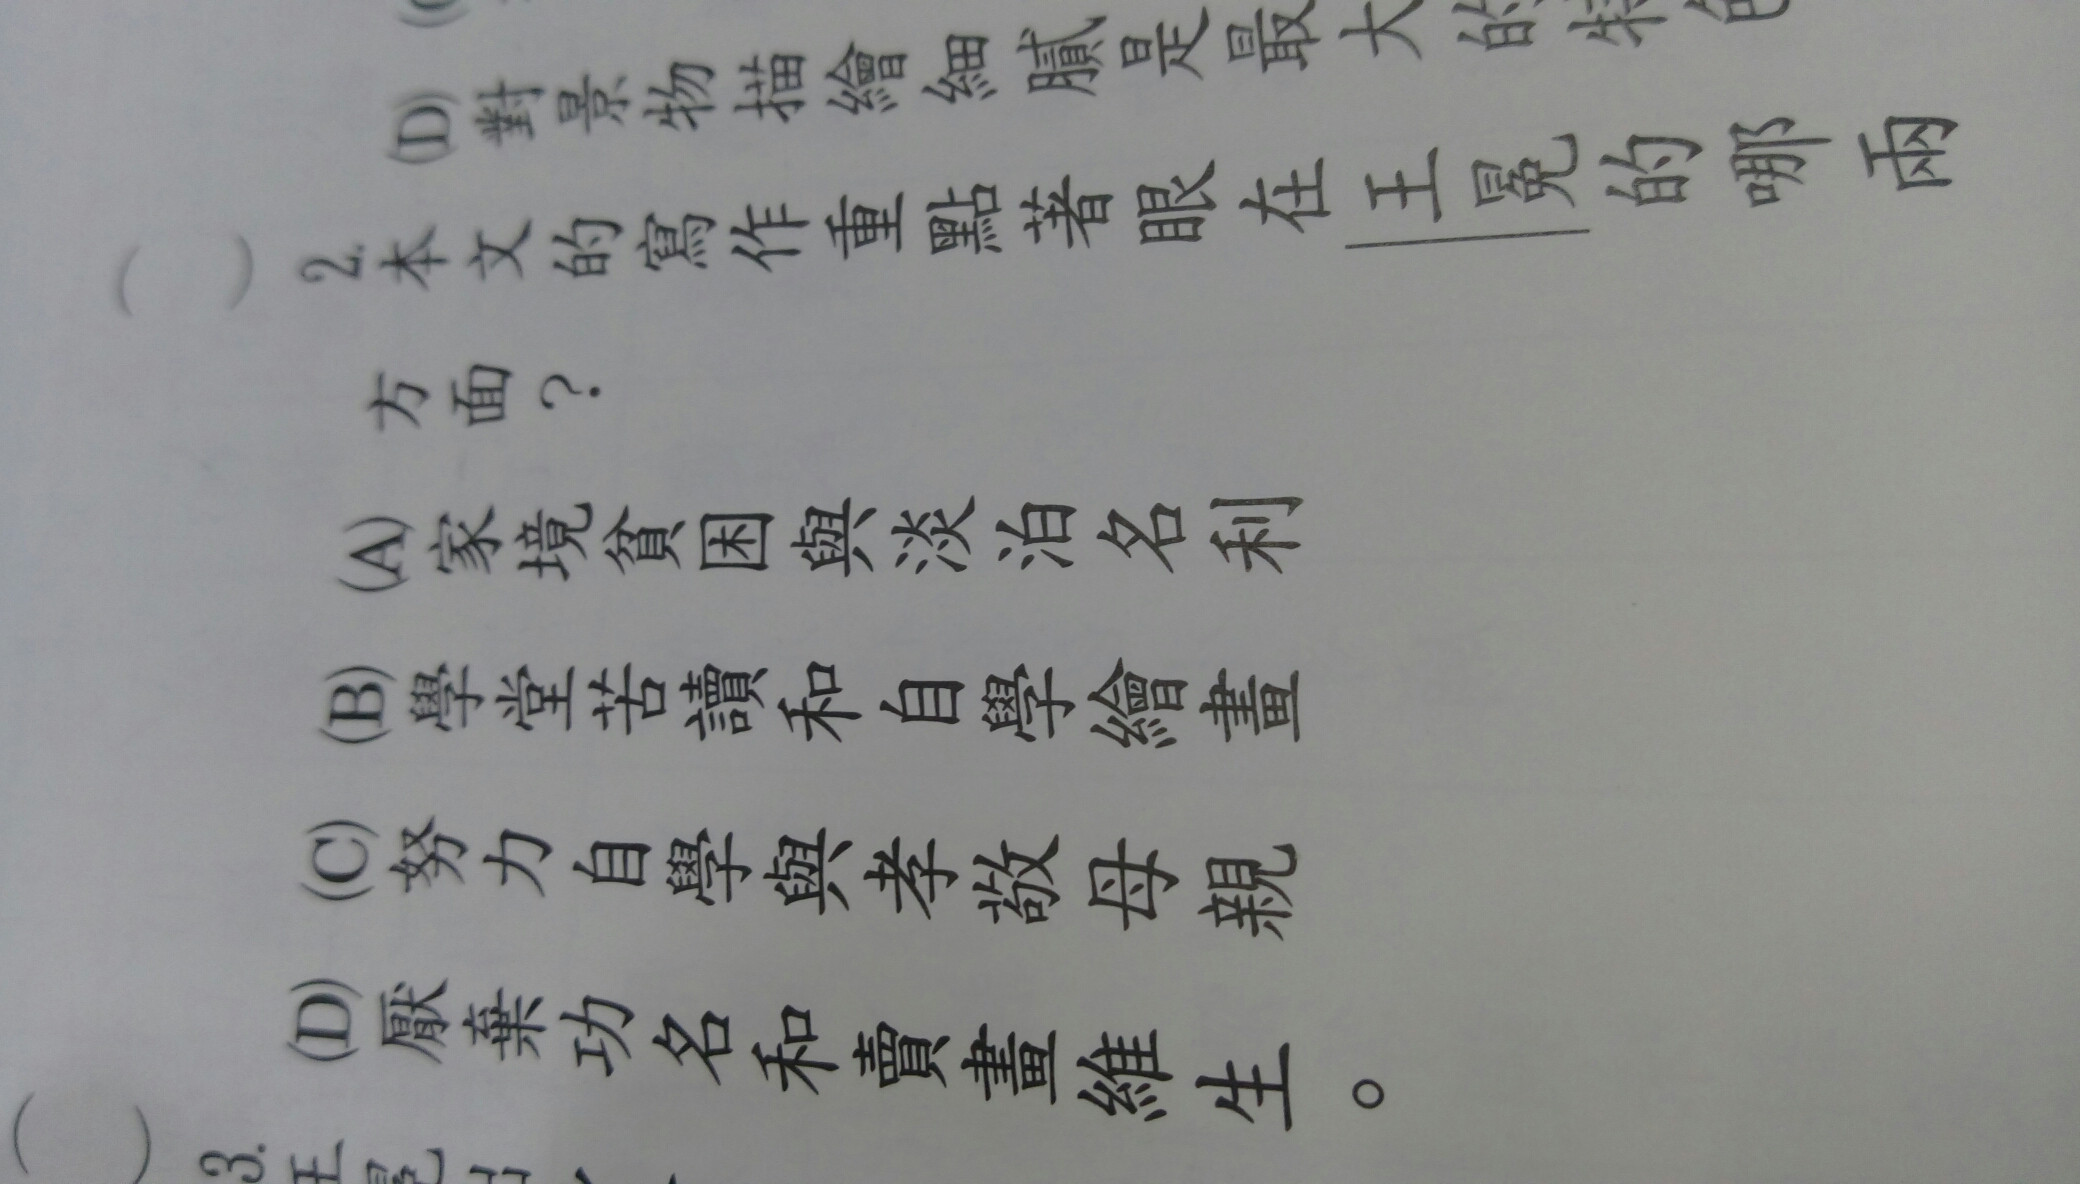 (D)對景物描繪細膩是最大的特色
( )2.本文的寫作重點著眼在王冕的哪兩
方面?
(A)家境貧困與淡泊名利
(B)學堂苦讀和自學繪畫
(C)努力自學與孝敬母親
(D)厭棄功名和賣畫維生。
( )3.王冕